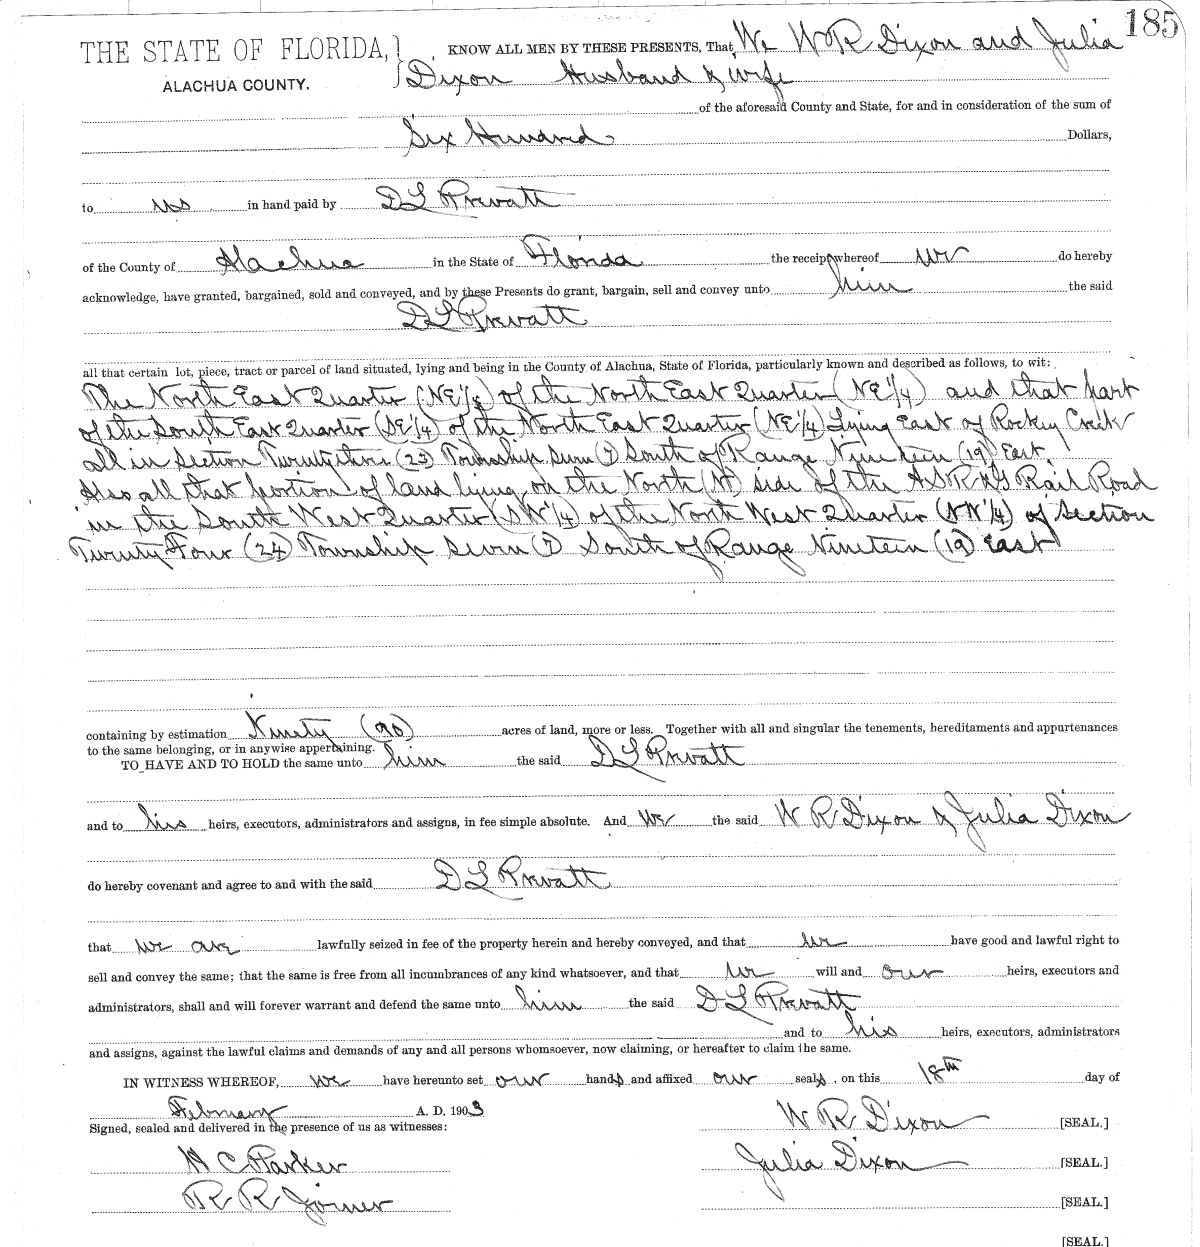 185
THE STATE OF FLORIDA, } KNOW ALL MEN BY THESE PRESENTS, That We W R Dixon and Julia
ALACHUA COUNTY. Dixon Husband & wife
of the aforesaid County and State, for and in consideration of the sum of
Six Hundred Dollars,
to us in hand paid by D L Prevatt
of the County of Alachua in the State of Florida the receipt whereof we do hereby
acknowledge, have granted, bargained, sold and conveyed, and by these Presents do grant, bargain, sell and convey unto him the said
D L Prevatt
all that certain lot, piece, tract or parcel of land situated, lying and being in the County of Alachua, State of Florida, particularly known and described as follows, to wit:
The North East Quarter (NE 1/4) of the North East Quarter (NE 1/4) and that part
of the South East Quarter (SE 1/4) of the North East Quarter (NE 1/4) Lying East of Rocky Creek
all in Section Twenty three (23) Township Seven (7) South of Range Nineteen (19) East.
Also all that portion of land lying on the North (N) side of the A S R & G Rail Road
in the South West Quarter (SW 1/4) of the North West Quarter (NW 1/4) of Section
Twenty Four (24) Township Seven (7) South of Range Nineteen (19) East
containing by estimation Ninety (90) acres of land, more or less. Together with all and singular the tenements, hereditaments and appurtenances
to the same belonging, or in anywise appertaining.
TO HAVE AND TO HOLD the same unto him the said D L Prevatt
and to his heirs, executors, administrators and assigns, in fee simple absolute. And We the said W R Dixon & Julia Dixon
do hereby covenant and agree to and with the said D L Prevatt
that we are lawfully seized in fee of the property herein and hereby conveyed, and that we have good and lawful right to
sell and convey the same; that the same is free from all incumbrances of any kind whatsoever, and that we will and our heirs, executors and
administrators, shall and will forever warrant and defend the same unto him the said D L Prevatt
and to his heirs, executors, administrators
and assigns, against the lawful claims and demands of any and all persons whomsoever, now claiming, or hereafter to claim the same.
IN WITNESS WHEREOF, we have hereunto set our hands and affixed our seals, on this 18th day of
February A. D. 1903 W R Dixon [SEAL.]
Signed, sealed and delivered in the presence of us as witnesses:
H C Parker Julia Dixon [SEAL.]
R R Joiner [SEAL.]
[SEAL.]